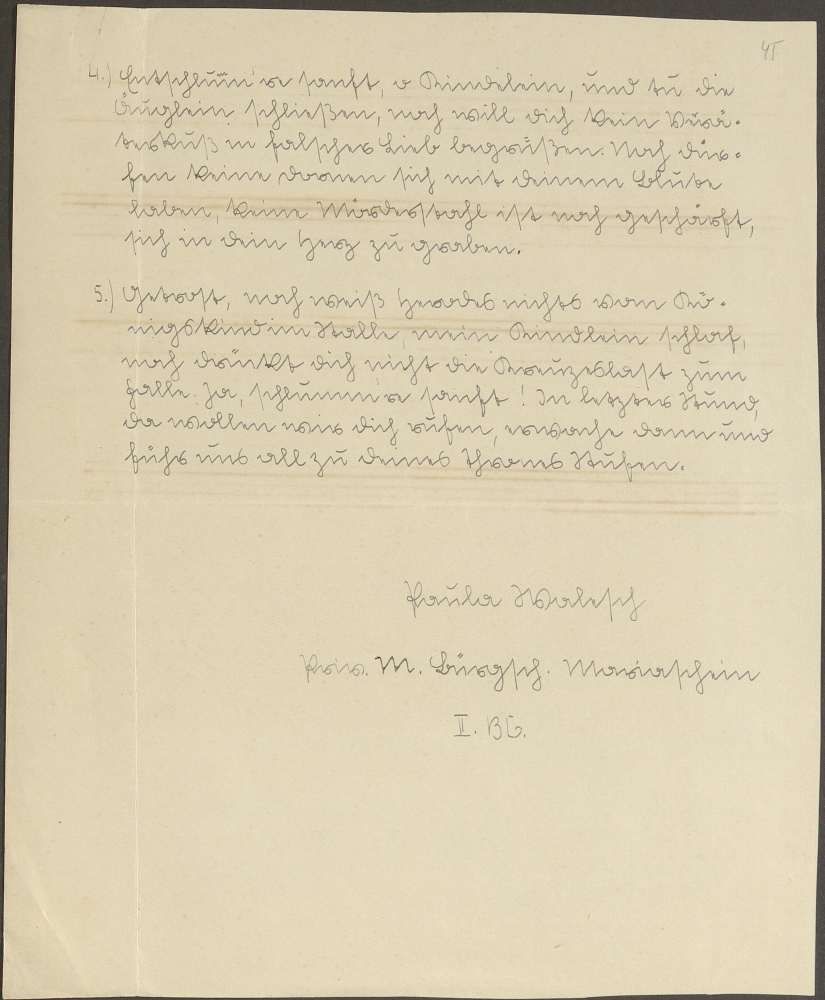 45
4.) Entschlumm're sanft, o Kindelein, und tu die
Äuglein schließen, noch will dich kein Verrä-
terkuß in falscher Lieb begrüßen. Noch dür-
fen keine Dornen sich mit deinem Blute
laben, keine Mörderstahl ist noch geschärft,
sich in dein Herz zu graben.
5.) Getrost, noch weiß Herodes nichts vom Kö-
nigskind im Stalle, mein Kindlein schlaf,
noch drückt dich nicht die Kreuzeslast zum
Falle. Ja, schlumm're sanft! In letzter Stund,
da wollen wir dich rufen, erwache dann und
führ uns all zu deines Thrones Stufen.
Paula Walesch
Priv. M. Bürgsch. Mariaschein
II. Bg.